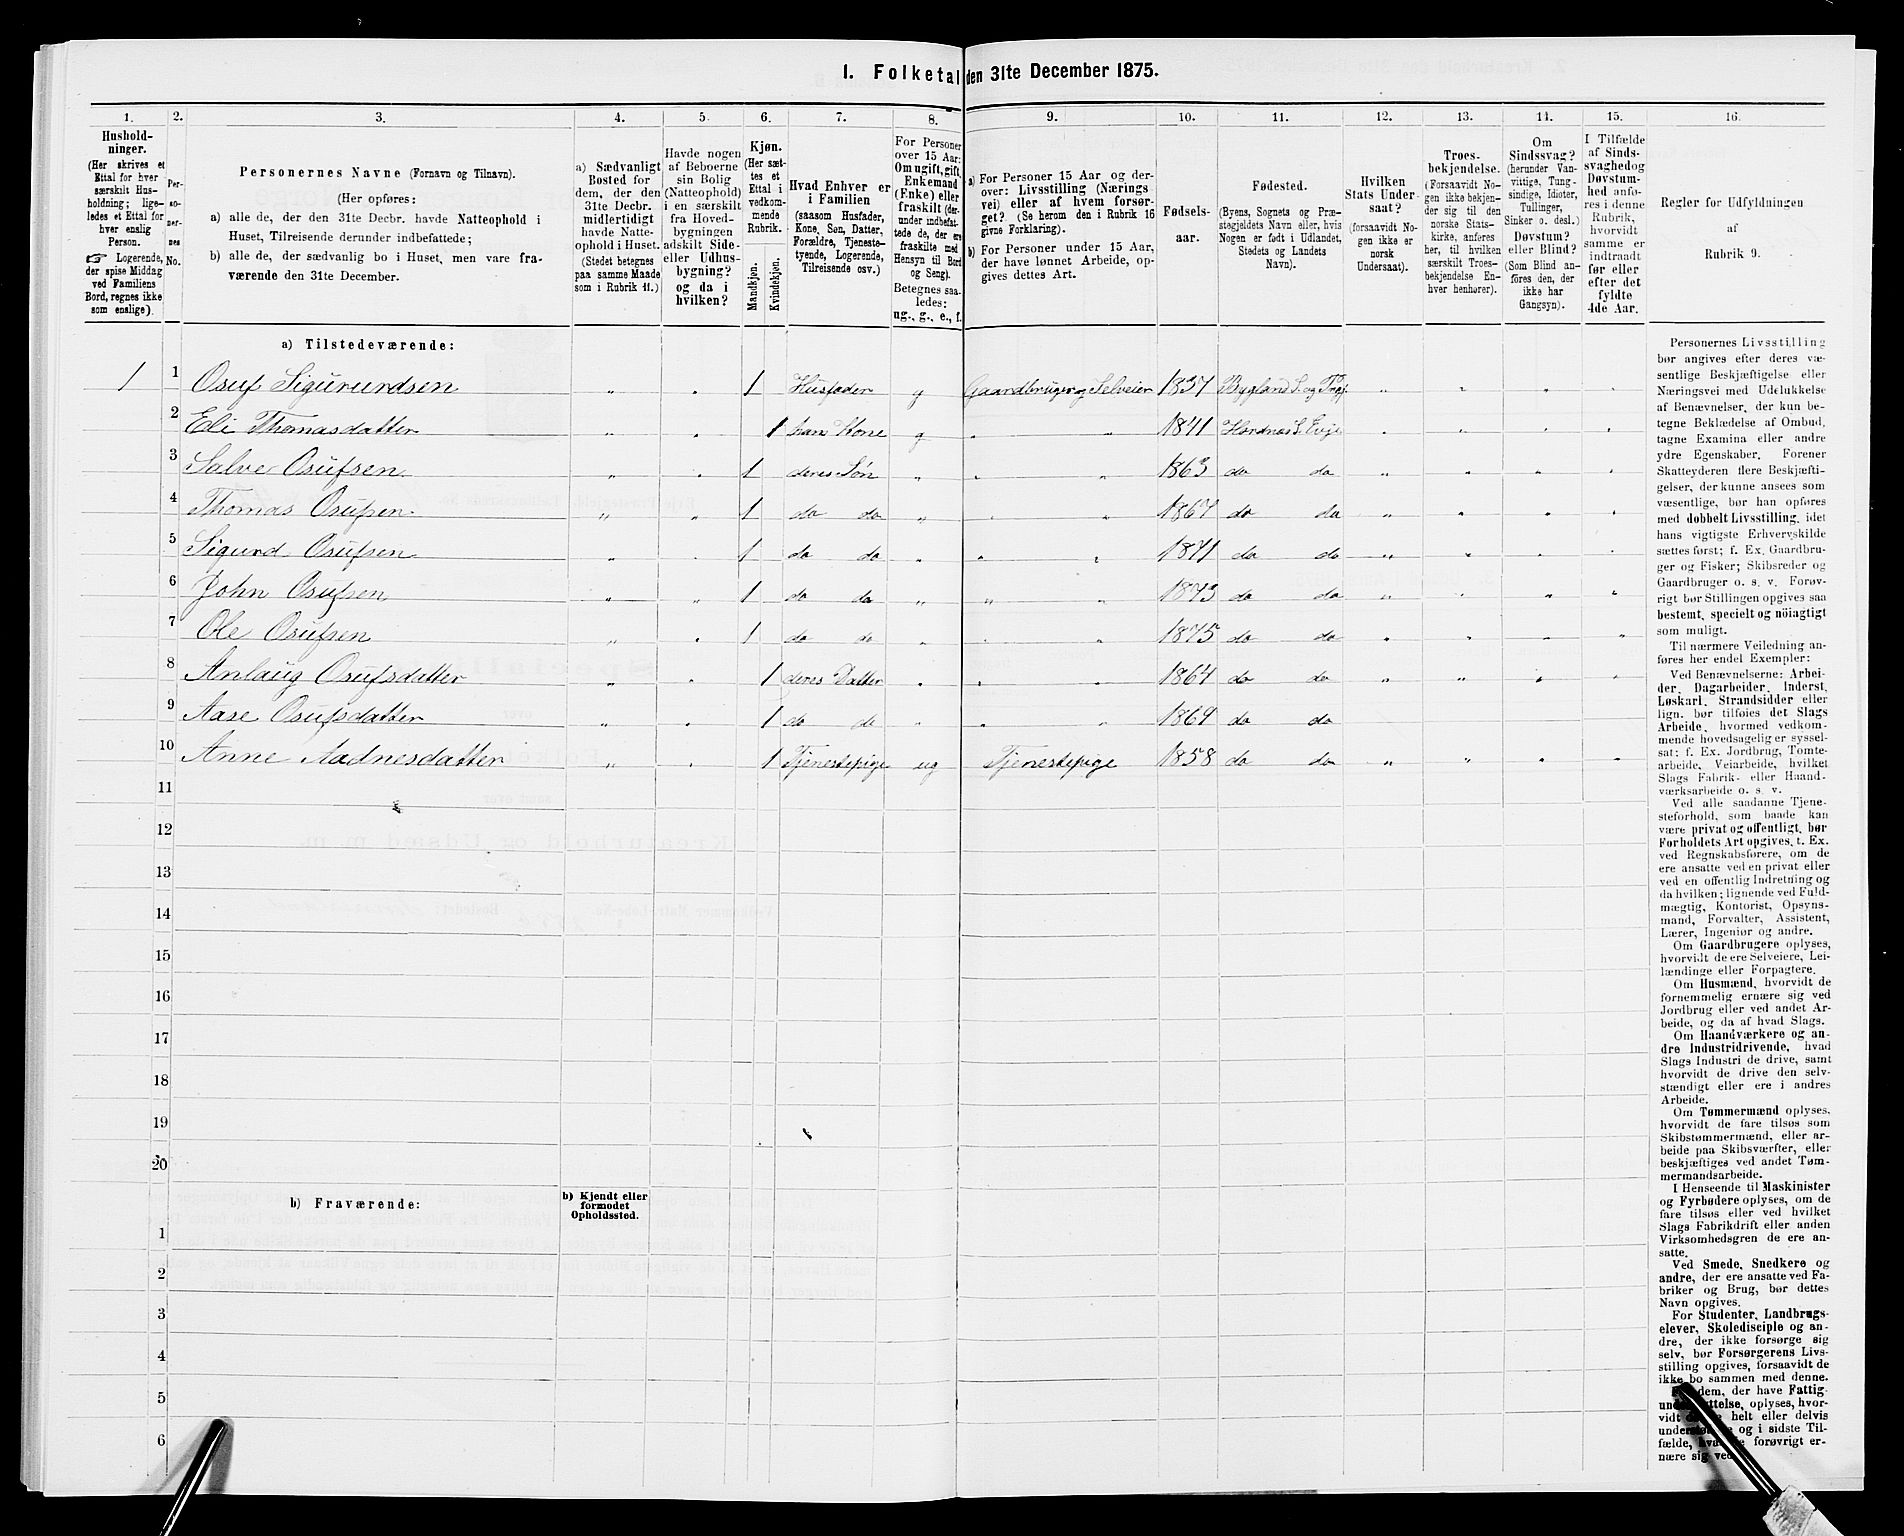 1. Folketal den 31te December 1875.
1. 2. 3. 4. 5. 6. 7. 8. 9. 10. 11. 12. 13. 14. 15. 16.
Hushold-
ninger.
(Her skrives et
Ettal for hver
særskilt Hus-
holdning; lige-
ledes et Ettal for
hver enslig
Person.
☞ Logerende,
der spise Middag
ved Familiens
Bord, regnes ikke
som enslige).
Per-
so-
ner-
nes
No.
Personernes Navne (Fornavn og Tilnavn).
(Her opføres:
a) alle de, der den 31te Decbr. havde Natteophold i
Huset, Tilreisende derunder indbefattede;
b) alle de, der sædvanlig bo i Huset, men vare fra-
værende den 31te December.
a) Sædvanligt
Bosted for
dem, der den
31te Decbr.
midlertidigt
havde Natte-
ophold i Huset.
(Stedet betegnes
paa samme Maade
som i Rubrik 11.)
Havde nogen
af Beboerne
sin Bolig
(Natteophold)
i en særskilt
fra Hoved-
bygningen
adskilt Side-
eller Udhus-
bygning?
og da i
hvilken?
Kjøn.
(Her sæt-
tes et
Ettal i
vedkom-
mende
Rubrik.)
Mandkjøn.
Kvindekjøn.
Hvad Enhver er
i Familien
(saasom Husfader,
Kone, Søn, Datter,
Forældre, Tjeneste-
tyende, Logerende,
Tilreisende osv.)
For Personer
over 15 Aar:
Om ugift, gift,
Enkemand
(Enke) eller
fraskilt (der-
under indbefat-
tede de, der ere
fraskilte med
Hensyn til Bord
og Seng).
Betegnes saa-
ledes:
ug., g., e., f.
a) For Personer 15 Aar og der-
over: Livsstilling (Nærings-
vei) eller af hvem forsør-
get? (Se herom den i Rubrik 16
givne Forklaring).
b) For Personer under 15 Aar,
der have lønnet Arbeide, op-
gives dettes Art.
Fødsels-
aar.
Fødested.
(Byens, Sognets og Præ-
stegjeldets Navn eller, hvis
Nogen er født i Udlandet,
Stedets og Landets
Navn).
Hvilken
Stats Under-
saat?
(forsaavidt No-
gen ikke er
norsk
Undersaat).
Troes-
bekjendelse.
(Forsaavidt No-
gen ikke bekjen-
der sig til den
norske Stats-
kirke, anføres
her, til hvilken
særskilt Troes-
bekjendelse En-
hver henhører).
Om
Sindssvag?
(herunder Van-
vittige, Tung-
sindige, Idioter,
Tullinger,
Sinker o. desl.)
Døvstum?
eller Blind?
(Som Blind an-
føres den, der
ikke har
Gangsyn).
I Tilfælde
af Sinds-
svaghed og
Døvstum-
hed anfø-
res i denne
Rubrik,
hvorvidt
samme er
indtraadt
før eller
efter det
fyldte
4de Aar.
Regler for Udfyldningen
af
Rubrik 9.
a) Tilstedeværende:
1 1 Osuf Sigurundsen " " 1 Husfader g Gaardbruger og Selveier 1837 Bygland S. og " " " "
2 Eli Thomasdatter " " 1 hans Kone g " " 1841 Hordnæs S. Evje " " " "
3 Salve Osufsen " " 1 deres Søn " " " 1863 do do " " " "
4 Thomas Osufsen " " 1 do do " " " 1867 do do " " " "
5 Sigurd Osufsen " " 1 do do " " " 1871 do do " " " "
6 John Osufsen " " 1 do do " " " 1873 do do " " " "
7 Ole Osufsen " " 1 do do " " " 1875 do do " " " "
8 Anlaug Osufsdatter " " 1 deres Datter " " " 1864 do do " " " "
9 Aase Osufsdatter " " 1 do do " " " 1869 do do
10 Anne Aadnesdatter " " 1 Tjenestepige ug Tjenestepige 1858 do do " " " "
11
12
13
14
15
16
17
18
19
20
b) Fraværende:
b) Kjendt eller
formodet
Opholdssted.
1
2
3
4
5
6
Personernes Livsstilling
bør angives efter deres væ-
sentlige Beskjæftigelse eller
Næringsvei med Udelukkelse
af Benævnelser, der kun be-
tegne Beklædelse af Ombud,
tagne Examina eller andre
ydre Egenskaber. Forener
Skatteyderen flere Beskjæfti-
gelser, der kunne ansees som
væsentlige, bør han opføres
med dobbelt Livsstilling, idet
hans vigtigste Erhvervskilde
sættes først; f. Ex. Gaardbru-
ger og Fisker; Skibsreder og
Gaardbruger o. s. v. Forøv-
rigt bør Stillingen opgives saa
bestemt, specielt og nöiagtigt
som muligt.
Til nærmere Veiledning an-
føres her endel Exempler:
Ved Benævnelserne: Arbei-
der, Dagarbeider, Inderst,
Løskarl, Strandsidder eller
lign. bør tilføies det Slags
Arbeide, hvormed vedkom-
mende hovedsagelig er syssel-
sat; f. Ex. Jordbrug, Tomte-
arbeide, Veiarbeide, hvilket
Slags Fabrik- eller Haand-
værksarbeide o. s. v.
Ved alle saadanne Tjene-
steforhold, som baade kan
være privat og offentligt, bør
Forholdets Art opgives, t. Ex.
ved Regnskabsførere, om de
ere ansatte ved en privat eller
ved en offentlig Indretning og
da hvilken; lignende ved Fuld-
mægtig, Kontorist, Opsyns-
mand, Forvalter, Assistent,
Lærer, Ingeniør og andre.
Om Gaardbrugere oplyses,
hvorvidt de ere Selveiere, Lei-
lændinge eller Forpagtere.
Om Husmænd, hvorvidt de
fornemmelig ernære sig ved
Jordbrug eller ved andet Ar-
beide, og da af hvad Slags.
Om Haandværkere og an-
dre Industridrivende, hvad
Slags Industri de drive, samt
hvorvidt de drive den selv-
stændigt eller ere i andres
Arbeide.
Om Tømmermænd oplyses,
hvorvidt de fare tilsøs som
Skibstømmermænd, eller ar-
beide paa Skibsværfter, eller
beskjæftiges ved andet Tøm-
mermandsarbeide.
I Henseende til Maskinister
og Fyrbødere oplyses, om de
fare tilsøs eller ved hvilket
Slags Fabrikdrift eller anden
Virksomhedsgren de ere an-
satte.
Ved Smede, Snedkere og
andre, der ere ansatte ved Fa-
briker og Brug, bør dettes
Navn opgives.
For Studenter, Landbrugs-
elever, Skoledisciple og an-
dre, der ikke forsørge sig
selv, bør Forsørgerens Livs-
stilling opgives, forsaavidt de
ikke bo sammen med denne.
dem, der have Fattig-
oplyses, hvor-
vidt helt eller delvis
og i sidste Til-
fælde, forøvrigt er-
nære sig ved